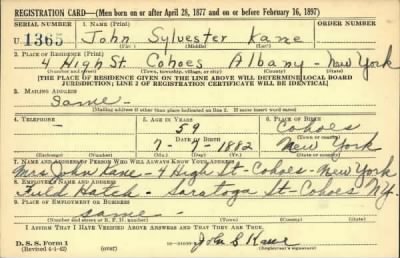 REGISTRATION CARD—(Men born on or after April 28, 1877 and on or before February 16, 1897)
SERIAL NUMBER 1. NAME (Print) ORDER NUMBER
U 1365 John Sylvester Kane
(First) (Middle) (Last)
2. PLACE OF RESIDENCE (Print)
4 High St. Cohoes Albany - New York
(Number and street) (Town, township, village, or city) (County) (State)
[THE PLACE OF RESIDENCE GIVEN ON THE LINE ABOVE WILL DETERMINE LOCAL BOARD
JURISDICTION; LINE 2 OF REGISTRATION CERTIFICATE WILL BE IDENTICAL]
3. MAILING ADDRESS
Same -
[Mailing address if other than place indicated on line 2. If same insert word same]
4. TELEPHONE 5. AGE IN YEARS 6. PLACE OF BIRTH
- 59 Cohoes
DATE OF BIRTH (Town or county)
7-7-1882 New York
(Exchange) (Number) (Mo.) (Day) (Yr.) (State or country)
7. NAME AND ADDRESS OF PERSON WHO WILL ALWAYS KNOW YOUR ADDRESS
Mrs John Kane - 4 High St - Cohoes - New York
8. EMPLOYER'S NAME AND ADDRESS
Hatch - Saratoga St - Cohoes N.Y.
9. PLACE OF EMPLOYMENT OR BUSINESS
same -
(Number and street or R. F. D. number) (Town) (County) (State)
I AFFIRM THAT I HAVE VERIFIED ABOVE ANSWERS AND THAT THEY ARE TRUE.
D. S. S. Form 1
(Revised 4-1-42) (over) John S Kane